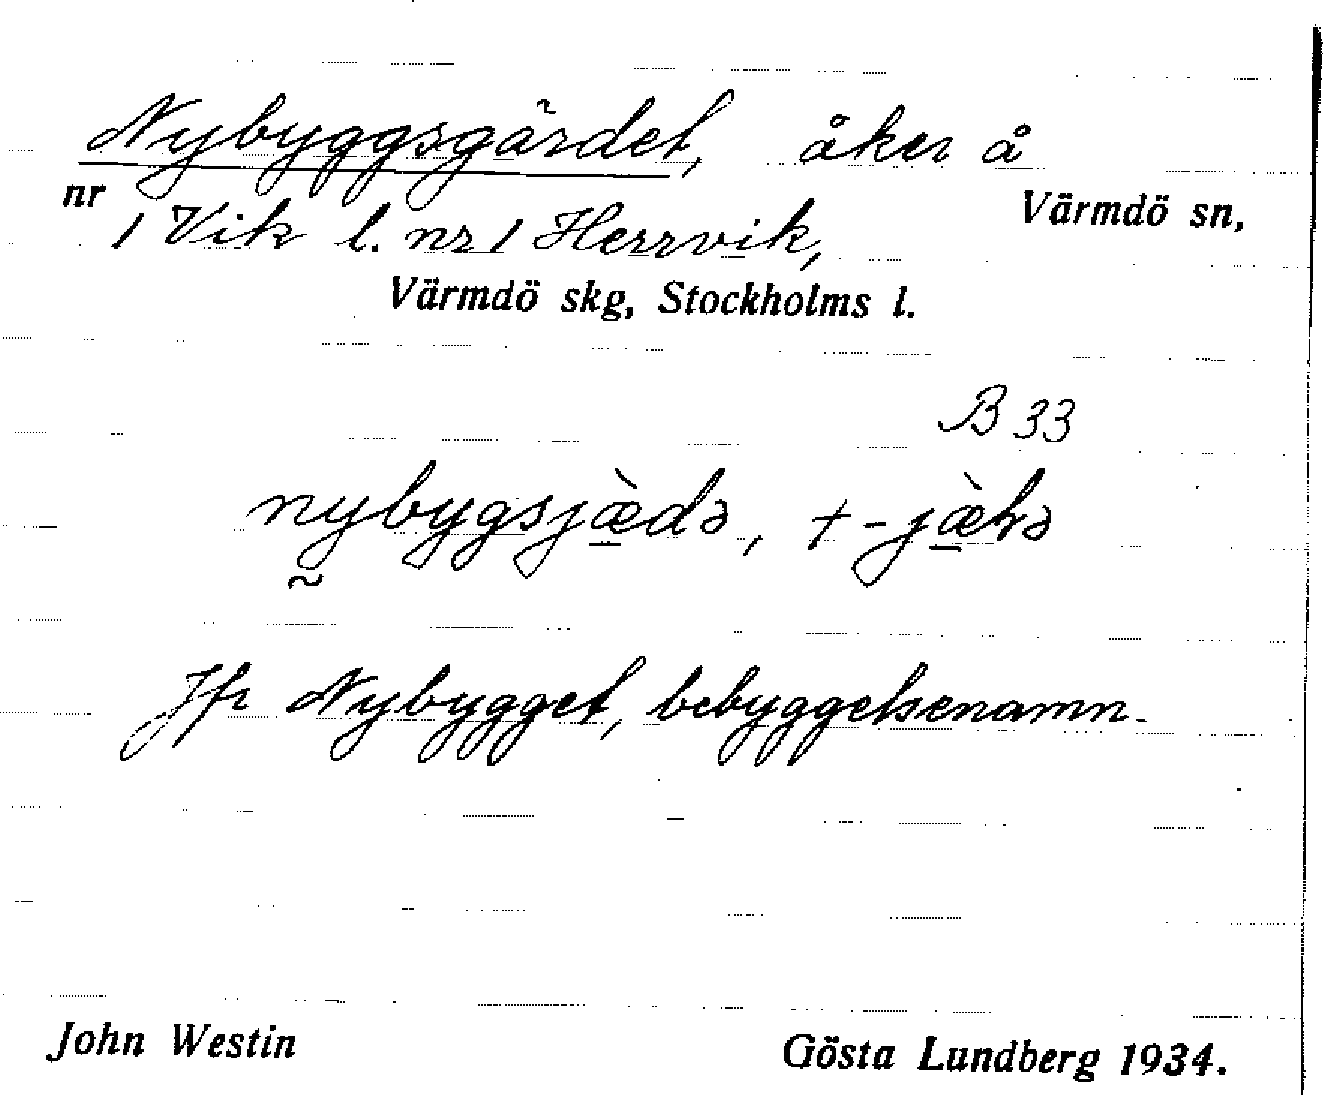 Nybyggsgärdet, åker å
nr 1 Vik l. nr 1 Herrvik, Värmdö sn,
Värmdö skg, Stockholms l.
B 33
nybygsjæ̀də, +-jæ̀tə
Jfr Nybygget, bebyggelsenamn.
John Westin Gösta Lundberg 1934.